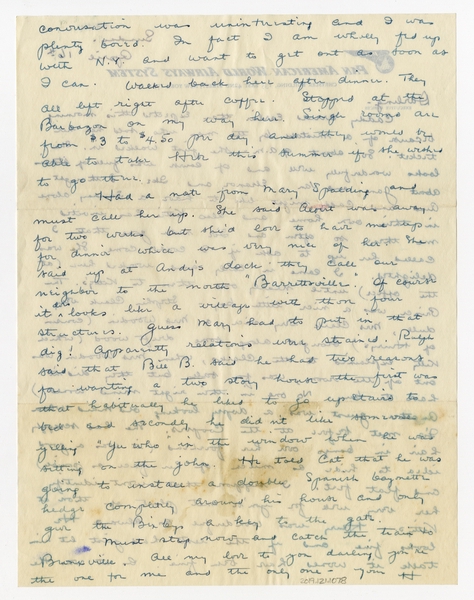 conversation was uninteresting and I was
plenty bored. In fact I am wholly fed up
with N.Y. and want to get out as soon as
I can. Walked back here after dinner. They
all left right after coffee. Stopped at the
Barbazon on my way here. Single rooms are
from $3 to $4.50 per day and they would be
able to take her this summer if she wishes
to go there.
Had a note from Mary Spalding and
must call her up. She said was away
for two weeks but she'd love to have me stop
for dinner which was very nice of her. She
said up at Andy's dock they call our
neighbor to the north "Barrettsville". Of course
it does looks like a village with those four
structures. Guess Mary had to put in that
dig! Apparently relations were strained.
said that Bill B. said he had two reasons
for wanting a two story house the first was
that habitually he liked to go upstairs to
bed and secondly he didn't like someone
yelling "Yu who" in the window when he was
sitting on the john. He told Cat that he was
going to install a double Spanish bayonet
hedge completely around his house and only
give the a key to the gate.
Must stop now and catch the train to
Bronxville. All my love to you darling, you're
the one for me and the only one - your H